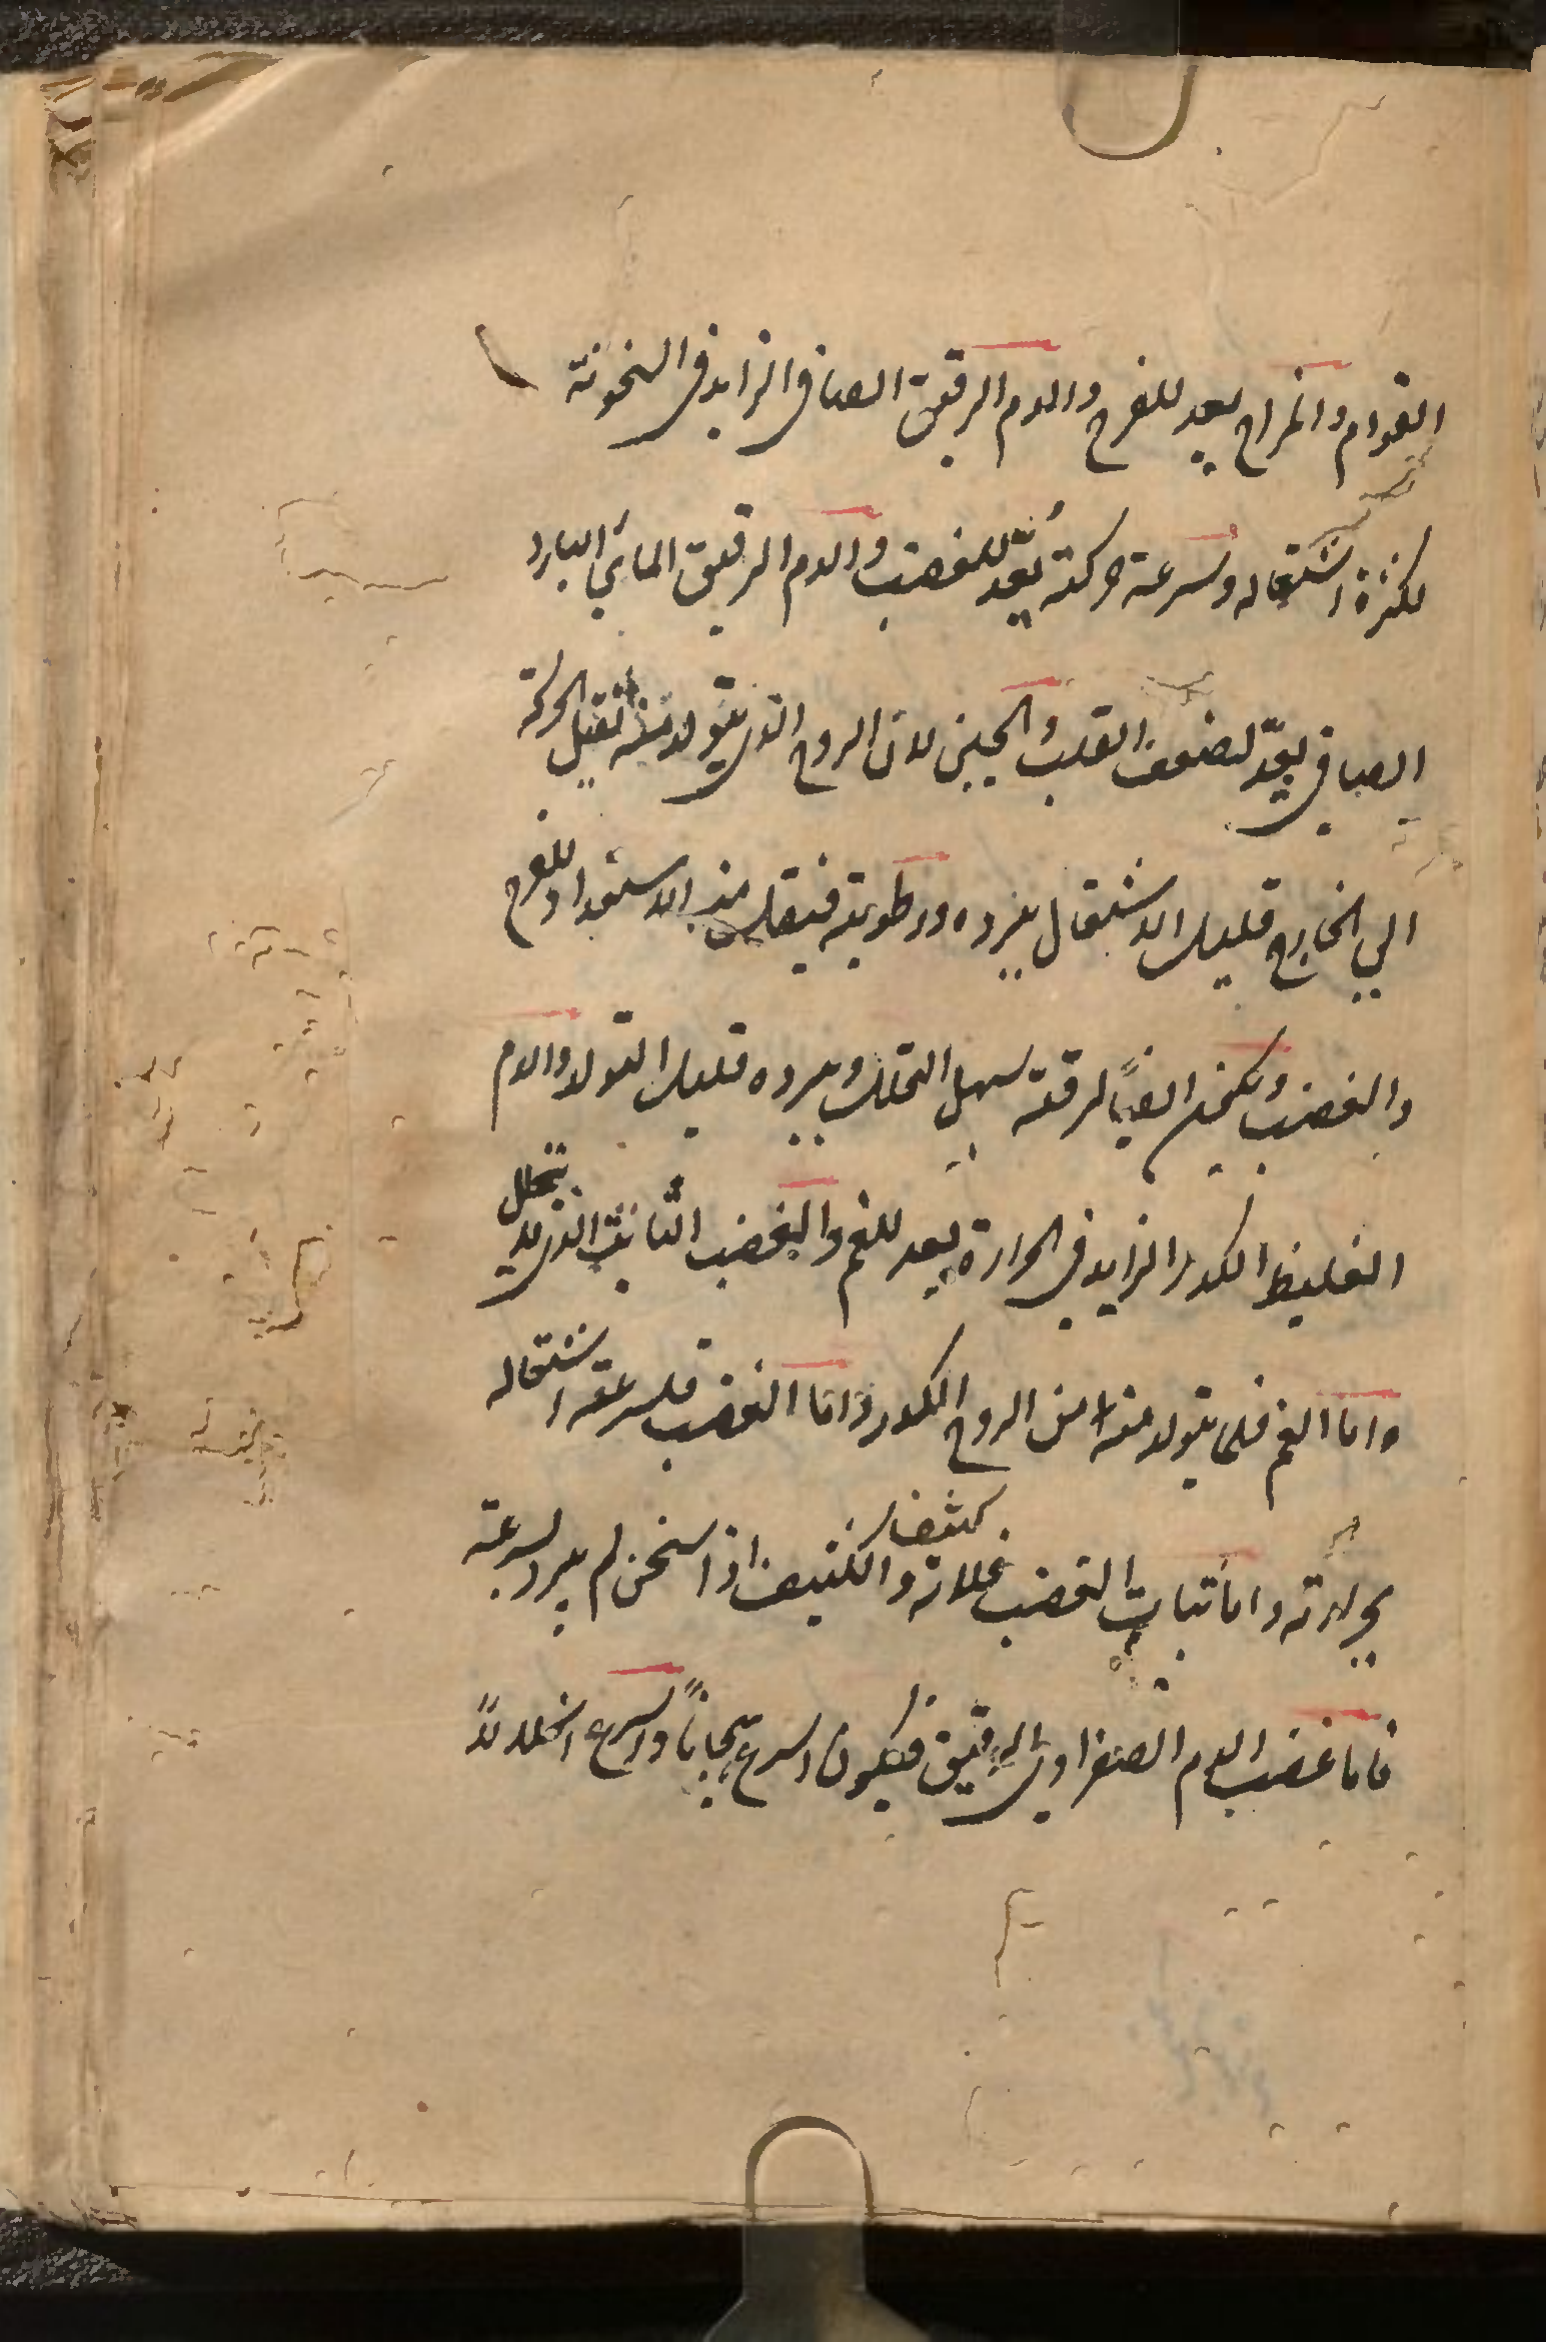 القوام والمزاج يعد للفرح والدم الرقيق الصافى الزايد فى السخونة
لكثرة اشتعاله وسرعة حركته يُعّد للغضب والدم الرقيق المائي البارد
الصافى يعدّ لضعف القلب والجبن لان الروح الذى يتولد منه ثقيل الحركة
الي الخارج قليل الاشتعال لبرده ورطوبته فيقل منه الاستعداد للفرح
والغضب ويكون ايضًا لرقته سهل التحلل وببرده قليل التولد والدم
الغليظ الكدر الزايد فى الحرارة يعد للغم والغضب الثابت الذى لا يتحلل
واما الغم فلما يتولد منه من الروح الكدر واما الغضب فلسرعة اشتعاله
بحرارته واما ثبات الغضب فلانه كثيف والكثيف اذا سخن لم يبرد بسرعة
فاما غضب الدم الصفراوى الرقيق فيكون اسرع هيجانًا واسرع انحلالاً